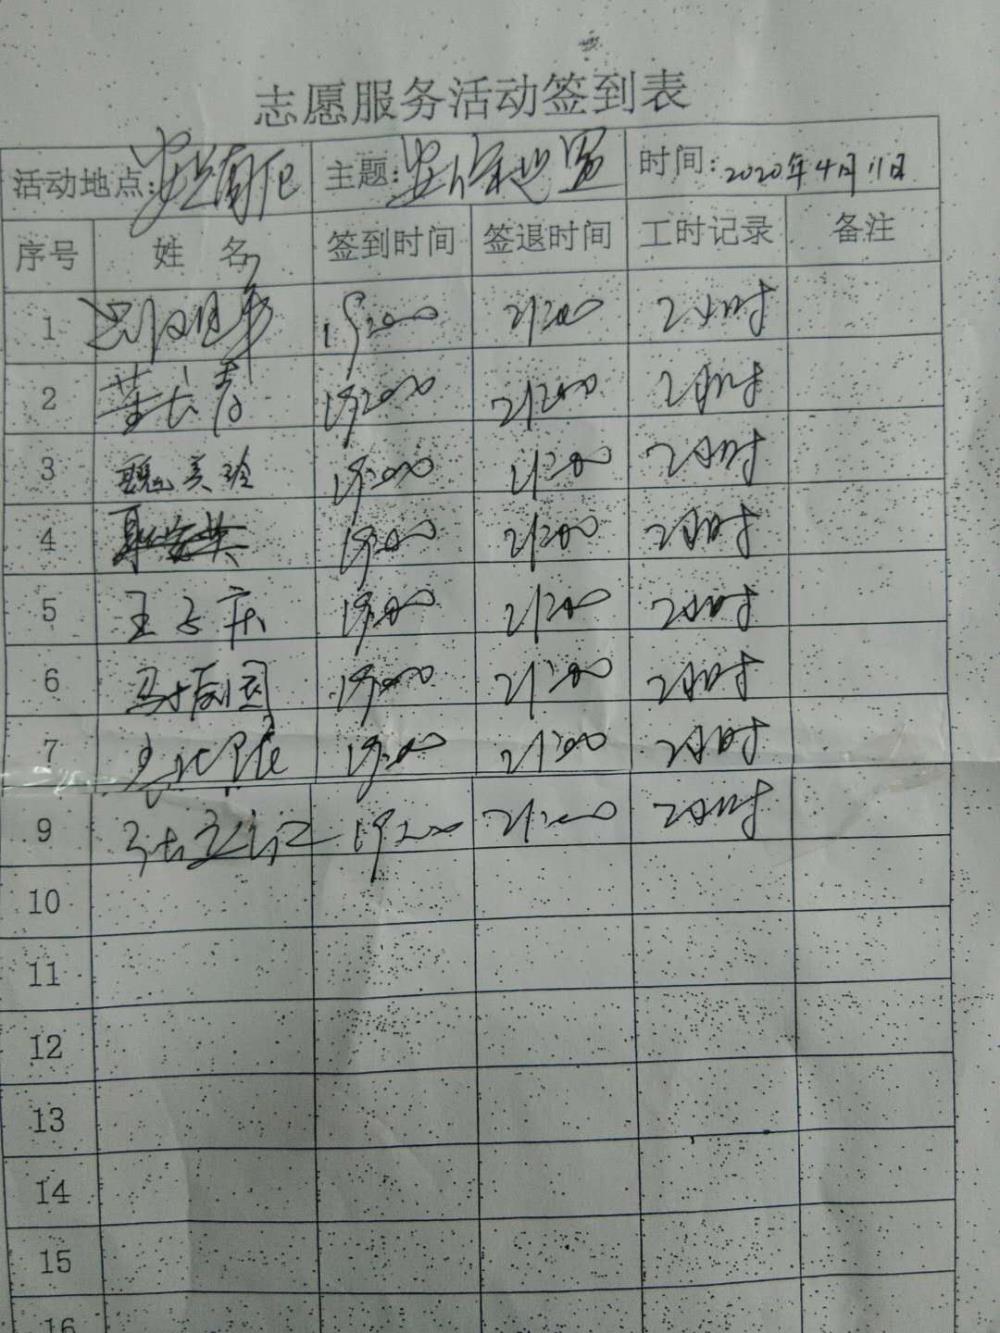 志愿服务活动签到表
活动地点: 主题: 时间: 2020年4月11日
序号 姓 名 签到时间 签退时间 工时记录 备注
1 19:00 21:00 2小时
2 19:00 21:00 2小时
3 魏美玲 19:00 21:00 2小时
4 19:00 21:00 2小时
5 王占庆 19:00 21:00 2小时
6 马振国 19:00 21:00 2小时
7 19:00 21:00 2小时
9 19:00 21:00 2小时
10
11
12
13
14
15
16